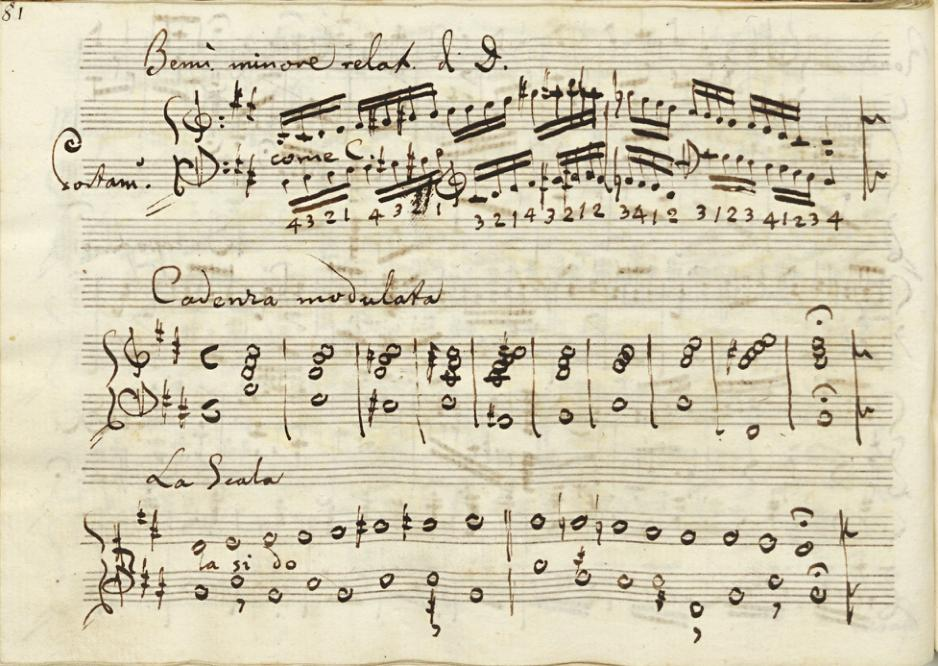 81
Bemi minore relat. di D.
come C.
4 3 2 1 4 3 2 1 3 2 1 4 3 2 1 2 3 4 1 2 3 1 2 3 4 1 2 3 4
Cadenza modulata
La Scala
la si do